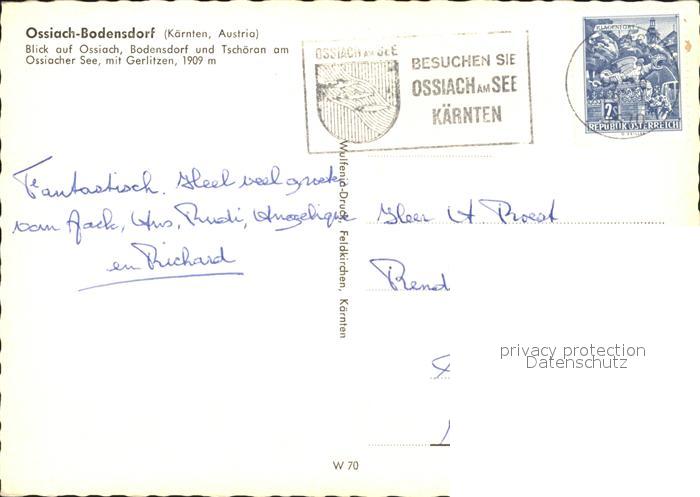 Ossiach-Bodensdorf (Kärnten, Austria)
Blick auf Ossiach, Bodensdorf und Tschöran am
Ossiacher See, mit Gerlitzen, 1909 m
OSSIACH AM SEE
BESUCHEN SIE
OSSIACH AM SEE
KÄRNTEN
KLAGENFURT
2
REPUBLIK ÖSTERREICH
Fantastisch. Heel veel groeten
van Jack, Ans, Rudi, Angelique
en Richard
Wulfenia-Druck, Feldkirchen, Kärnten
Heer A. Proest
Rend
privacy protection
Datenschutz
W 70